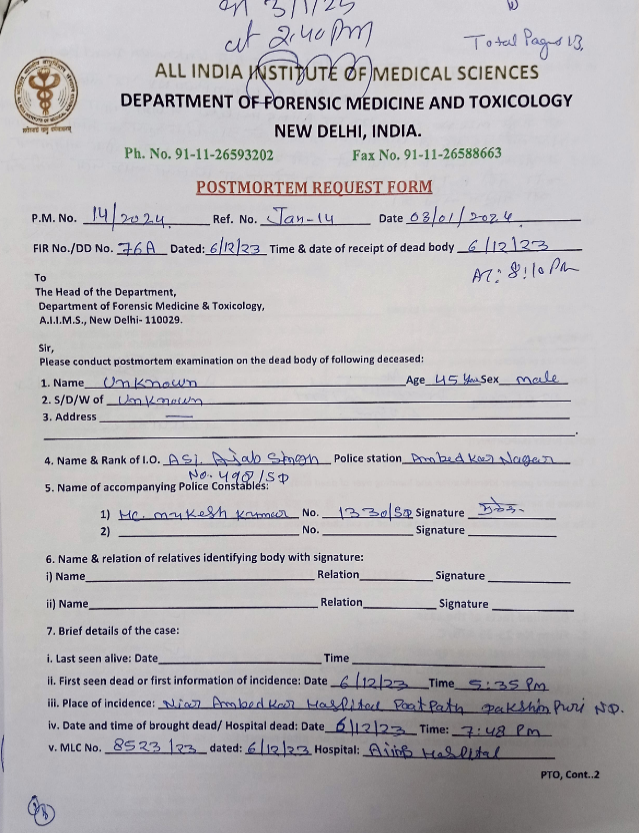 on 3/1/25
at 2:40 PM
Total Pages 13,
ALL INDIA INSTITUTE OF MEDICAL SCIENCES
DEPARTMENT OF FORENSIC MEDICINE AND TOXICOLOGY
NEW DELHI, INDIA.
Ph. No. 91-11-26593202 Fax No. 91-11-26588663
POSTMORTEM REQUEST FORM
P.M. No. 14/2024 Ref. No. Jan-14 Date 03/01/2024
FIR No./DD No. 76A Dated: 6/12/23 Time & date of receipt of dead body 6/12/23
AT: 8:10 PM
To
The Head of the Department,
Department of Forensic Medicine & Toxicology,
A.I.I.M.S., New Delhi- 110029.
Sir,
Please conduct postmortem examination on the dead body of following deceased:
1. Name Unknown Age 45 Sex male
2. S/D/W of Unknown
3. Address —
4. Name & Rank of I.O. ASI Ajab Singh Police station Ambedkar Nagar
No. 498/SD
5. Name of accompanying Police Constables:
1) HC. Mukesh Kumar No. 1330/SD Signature
2) No. Signature
6. Name & relation of relatives identifying body with signature:
i) Name Relation Signature
ii) Name Relation Signature
7. Brief details of the case:
i. Last seen alive: Date Time
ii. First seen dead or first information of incidence: Date 6/12/23 Time 5:35 PM
iii. Place of incidence: Niar Ambedkar Hospital Dakshin Puri ND.
iv. Date and time of brought dead/ Hospital dead: Date 6/12/23 Time: 7:48 PM
v. MLC No. 8523/23 dated: 6/12/23 Hospital: Aiims Hospital
PTO, Cont..2